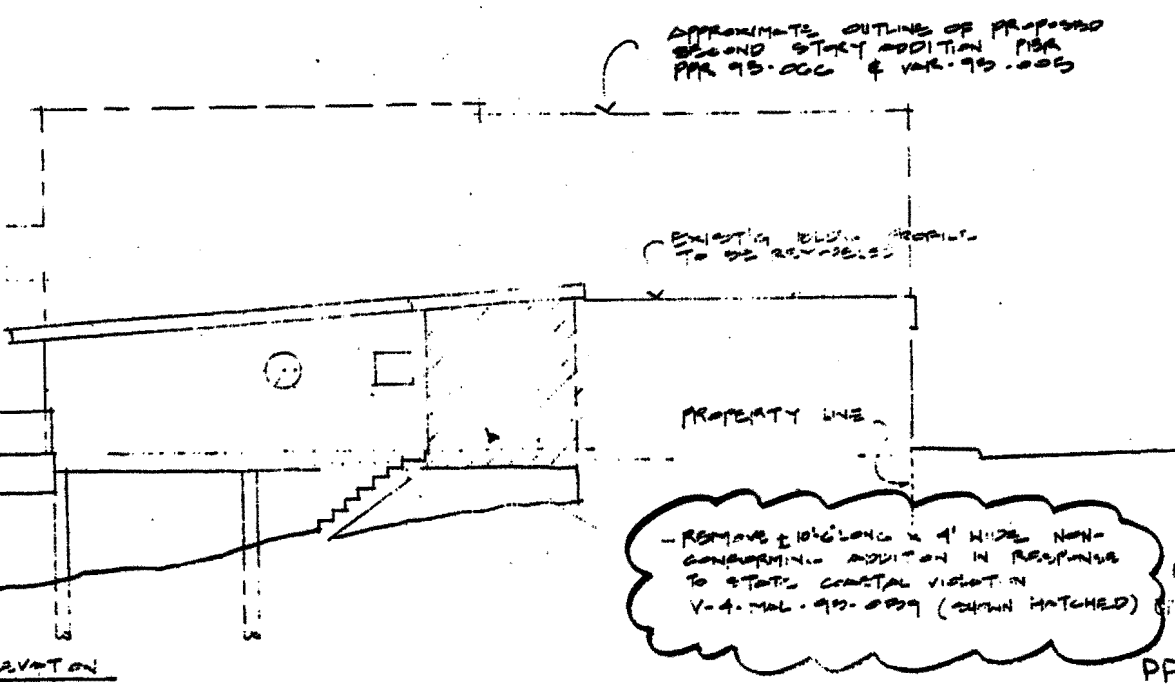 APPROXIMATE OUTLINE OF PROPOSED
SECOND STORY ADDITION PER
PPR 93-066 & VAR-93-005
EXIST'G BLD'G PROFILE
TO BE REMODELED
PROPERTY LINE
- REMOVE ± LONG x 4' WIDE NON-
CONFORMING ADDITION IN RESPONSE
TO STATE COASTAL VIOLATION
V-4-MAL-93-039 (SHOWN HATCHED)
EVATION
PP